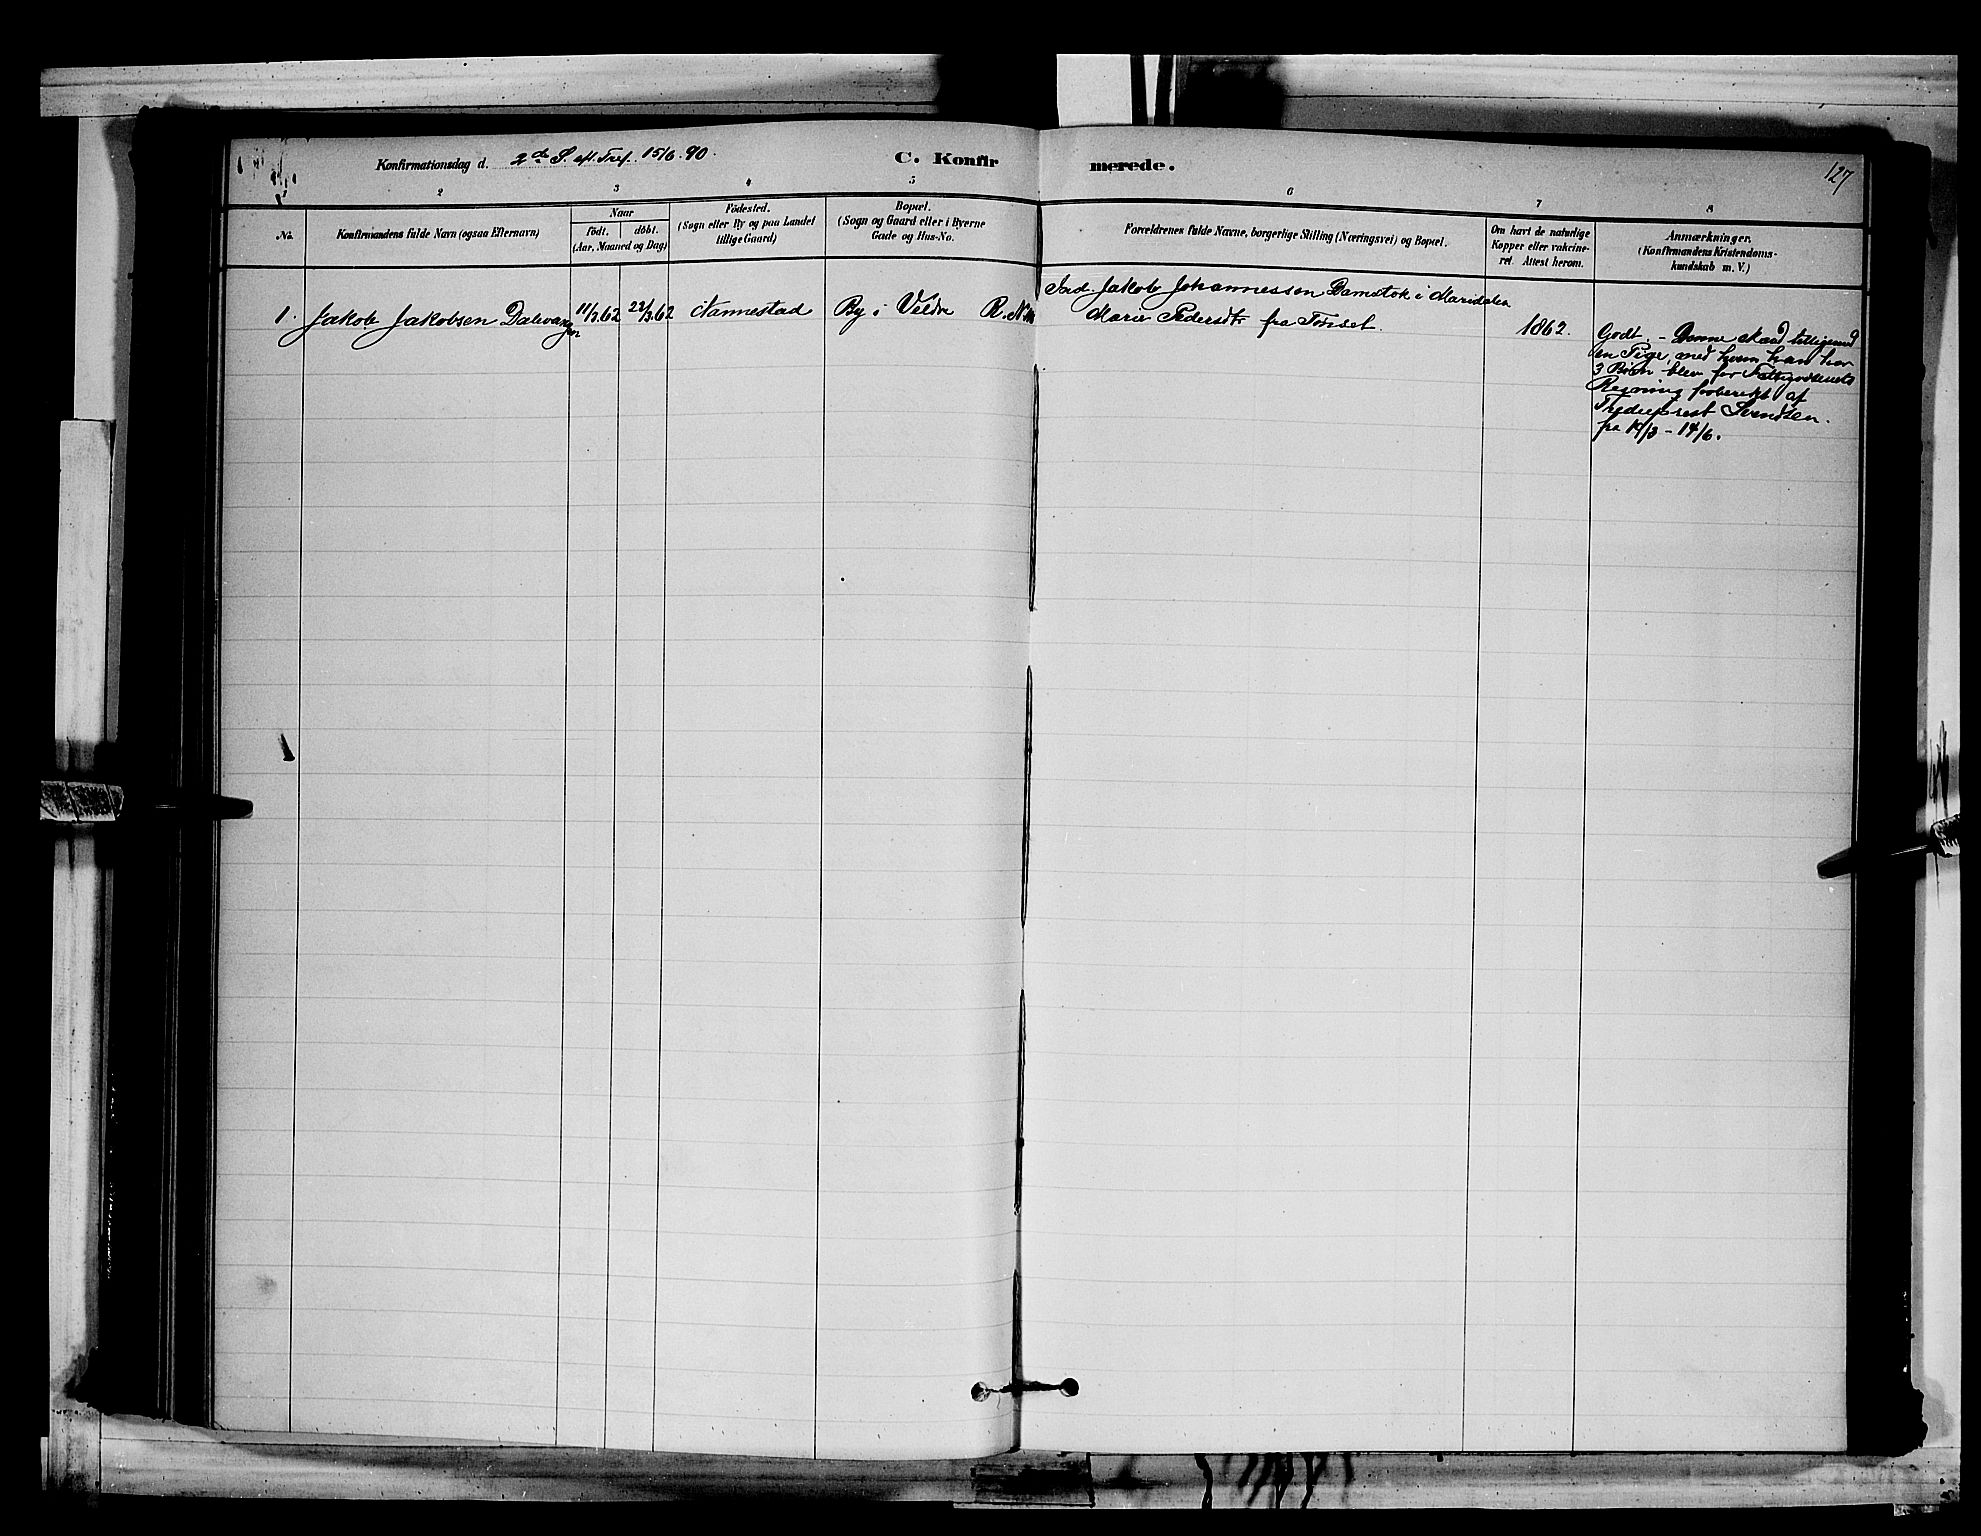 Konfirmationsdag d. 2de S. eft. Tref. 15/6 90.
C. Konfirmerede.
127
1 2 3 4 5 6 7 8
No.
Konfirmandens fulde Navn (ogsaa Efternavn)
Naar
født. døbt.
(Aar, Maaned og Dag)
Födested.
(Sogn eller By og paa Landet
tillige Gaard)
Bopæl.
(Sogn og Gaard eller i Byerne
Gade og Hus-No.
Forældrenes fulde Navne, borgerlige Stilling (Næringsvei) og Bopæl.
Om havt de naturlige
Kopper eller vakcine-
ret. Attest herom.
Anmærkninger.
(Konfirmandens Kristendoms-
kundskab m. V.)
1. Jakob Jakobsen Dalevangen
11/3 62
23/3 62
Nannestad
By i Veldre
Ind. Jakob Johannessen Damstok i Maridalen
Marie Pedersdtr fra Tønset.
1862.
Godt. – Denne skard tilligemed
en Pige, med hvem han har
3 Børn blev for Fattigvæsenets
Regning forberedt af
Fredsprest Svendsen.
fra 19/3 – 14/6.